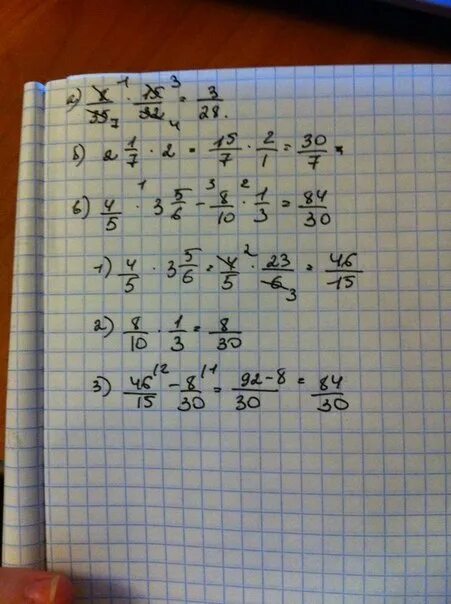 а) 8/35 · 15/32 = 3/28.
б) 2 1/7 · 2 = 15/7 · 2/1 = 30/7
в) 4/5 · 3 5/6 - 8/10 · 1/3 = 84/30
1) 4/5 · 3 5/6 = 4/5 · 23/6 = 46/15
2) 8/10 · 1/3 = 8/30
3) 46/15 - 8/30 = 92-8/30 = 84/30